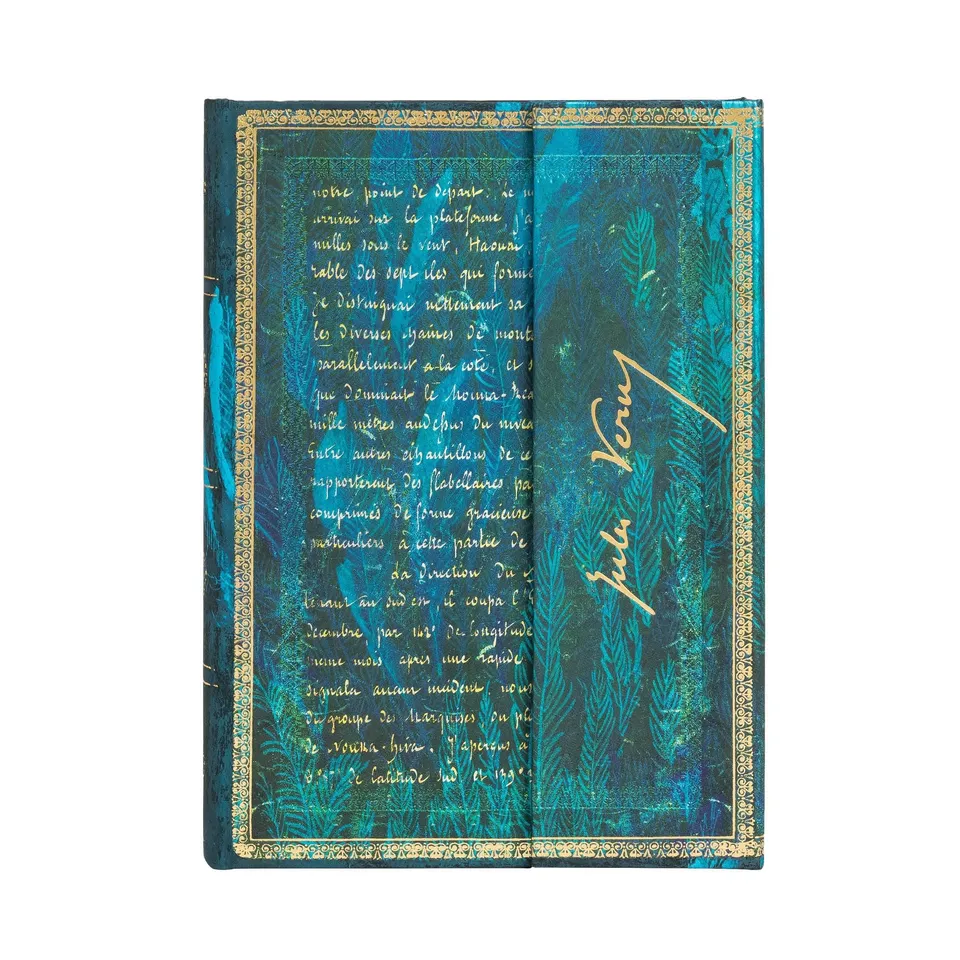 notre point de départ. Le m
arrivai sur la plateforme j'a
milles sous le vent, Haouai
rable des sept iles qui forme
Je distinguai nettement sa
les diverses chaines de mont
parallelement a la cote, et s
que dominait le Mouna-Rea
mille mètres audessus du nivea
Entre autres échantillons de ce
rapporterent des flabellaires pa
comprimés de forme gracieuse
particuliers à cette partie de
La direction du
tenant au sud est, il coupa l'
décembre, par 142° de longitude
meme mois après une rapide
signala aucun incident, nous
du groupe des Marquises, ou pl
de Nouka-hiva. J'aperçus a
de latitude sud et 139°
Jules Verne